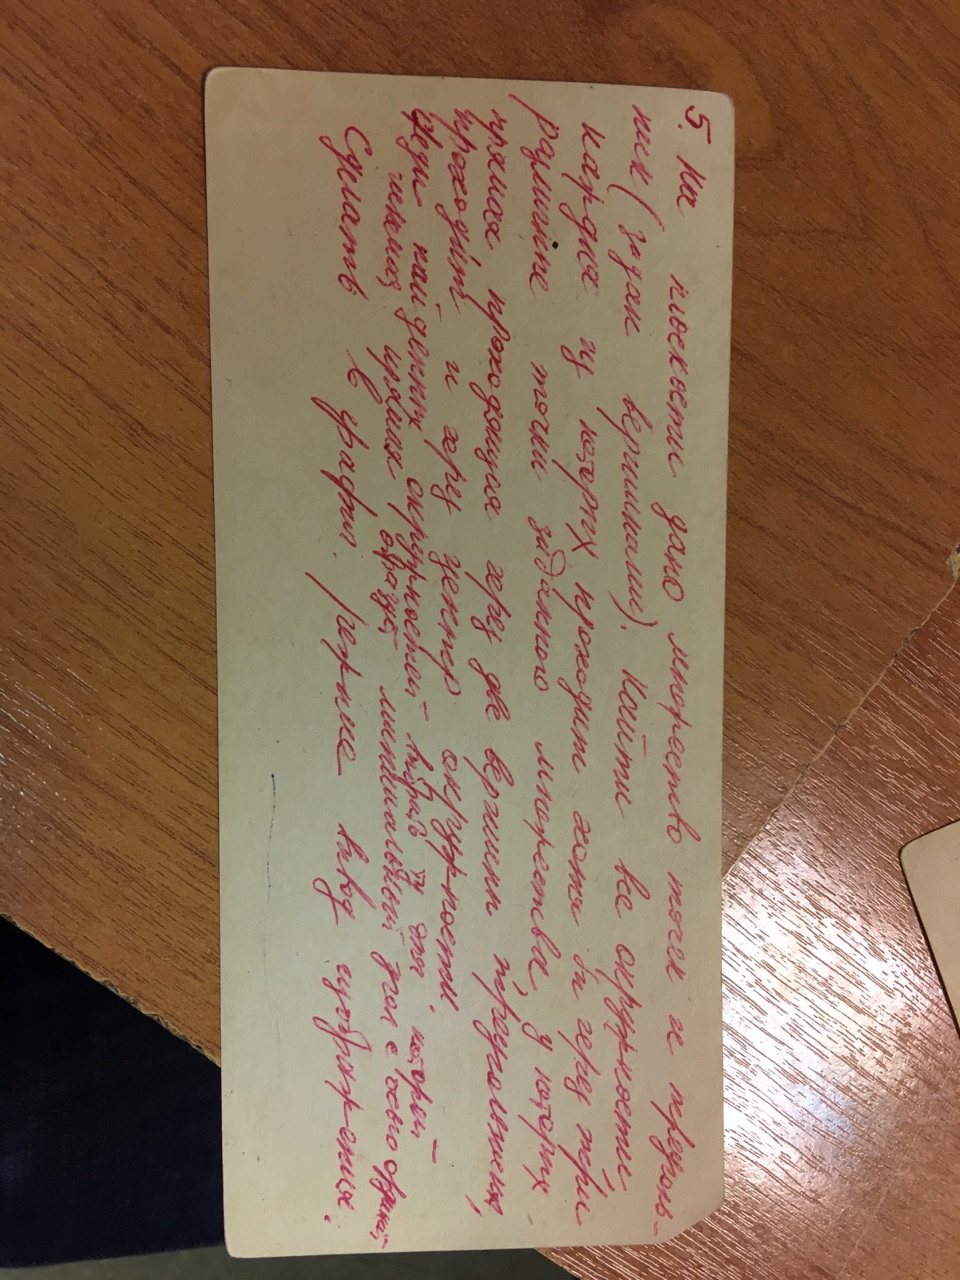 5. На плоскости дано множество точек и треуголь-
ник (задан вершинами). Найти все окружности,
каждая из которых проходит хотя бы через три
различные точки заданного множества, у которых
прямая проходящая через две вершины треугольника,
проходит и через центр окружности.
Среди найденных окружностей выбрать ту для которой
прямая образует минимальный угол с осью ординат
Сделать в график. режиме вывод изображения.